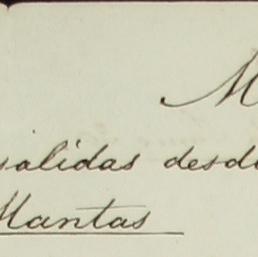 M
salidas desde
Mantas